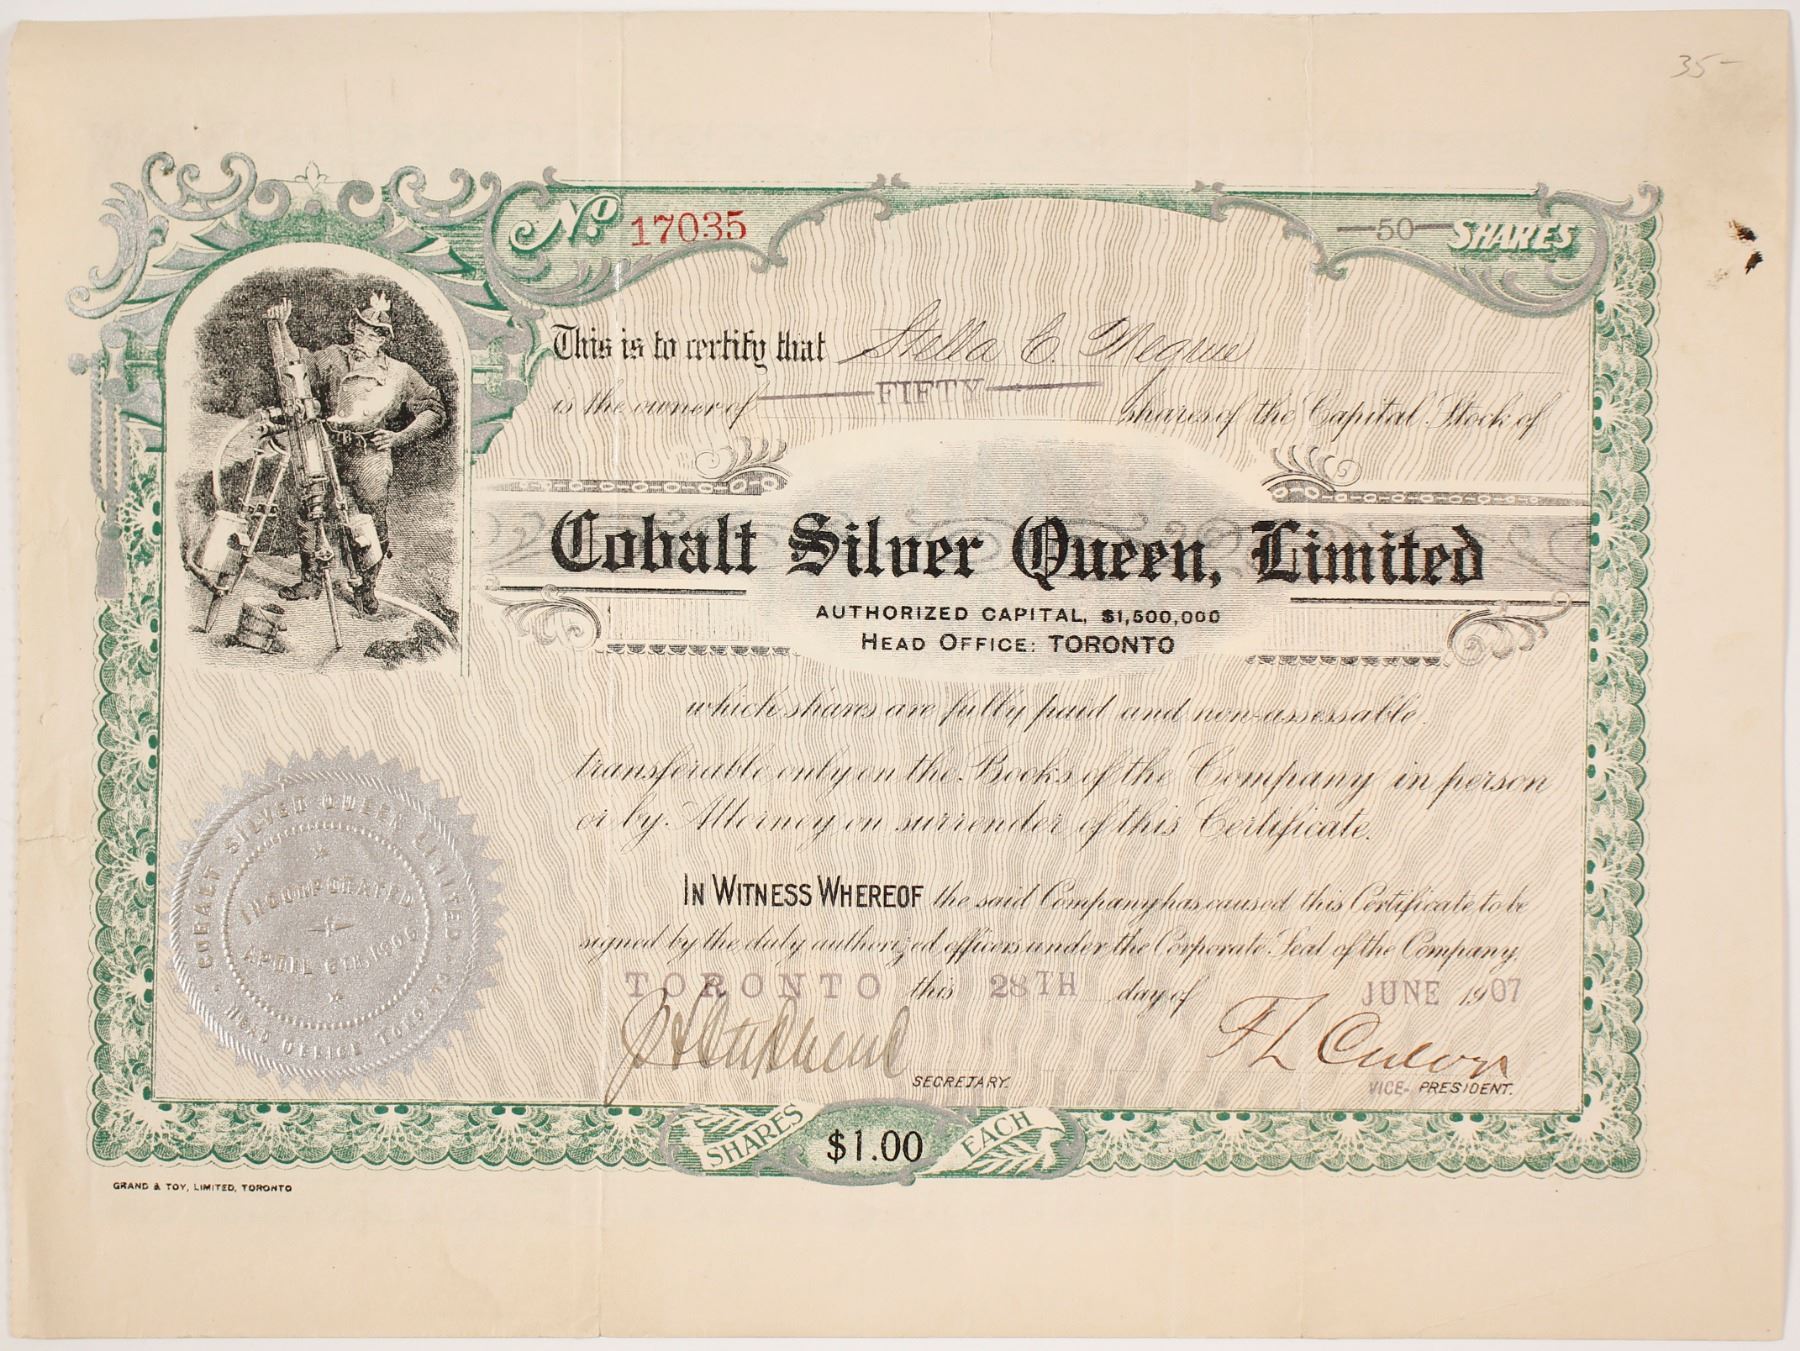 35-
No. 17035
—50— SHARES
This is to certify that Stella C. Megrue
is the owner of —FIFTY— shares of the Capital Stock of
Cobalt Silver Queen, Limited
AUTHORIZED CAPITAL, $1,500,000
HEAD OFFICE: TORONTO
which shares are fully paid and non-assessable
transferable only on the Books of the Company in person
or by Attorney on surrender of this Certificate.
IN WITNESS WHEREOF the said Company has caused this Certificate to be
signed by the duly authorized officers under the Corporate Seal of the Company,
TORONTO this 28TH day of JUNE 1907
F L Culver
SECRETARY.
VICE- PRESIDENT.
COBALT SILVER QUEEN LIMITED
INCORPORATED
APRIL 6TH, 1906
HEAD OFFICE TORONTO
SHARES $1.00 EACH
GRAND & TOY, LIMITED, TORONTO